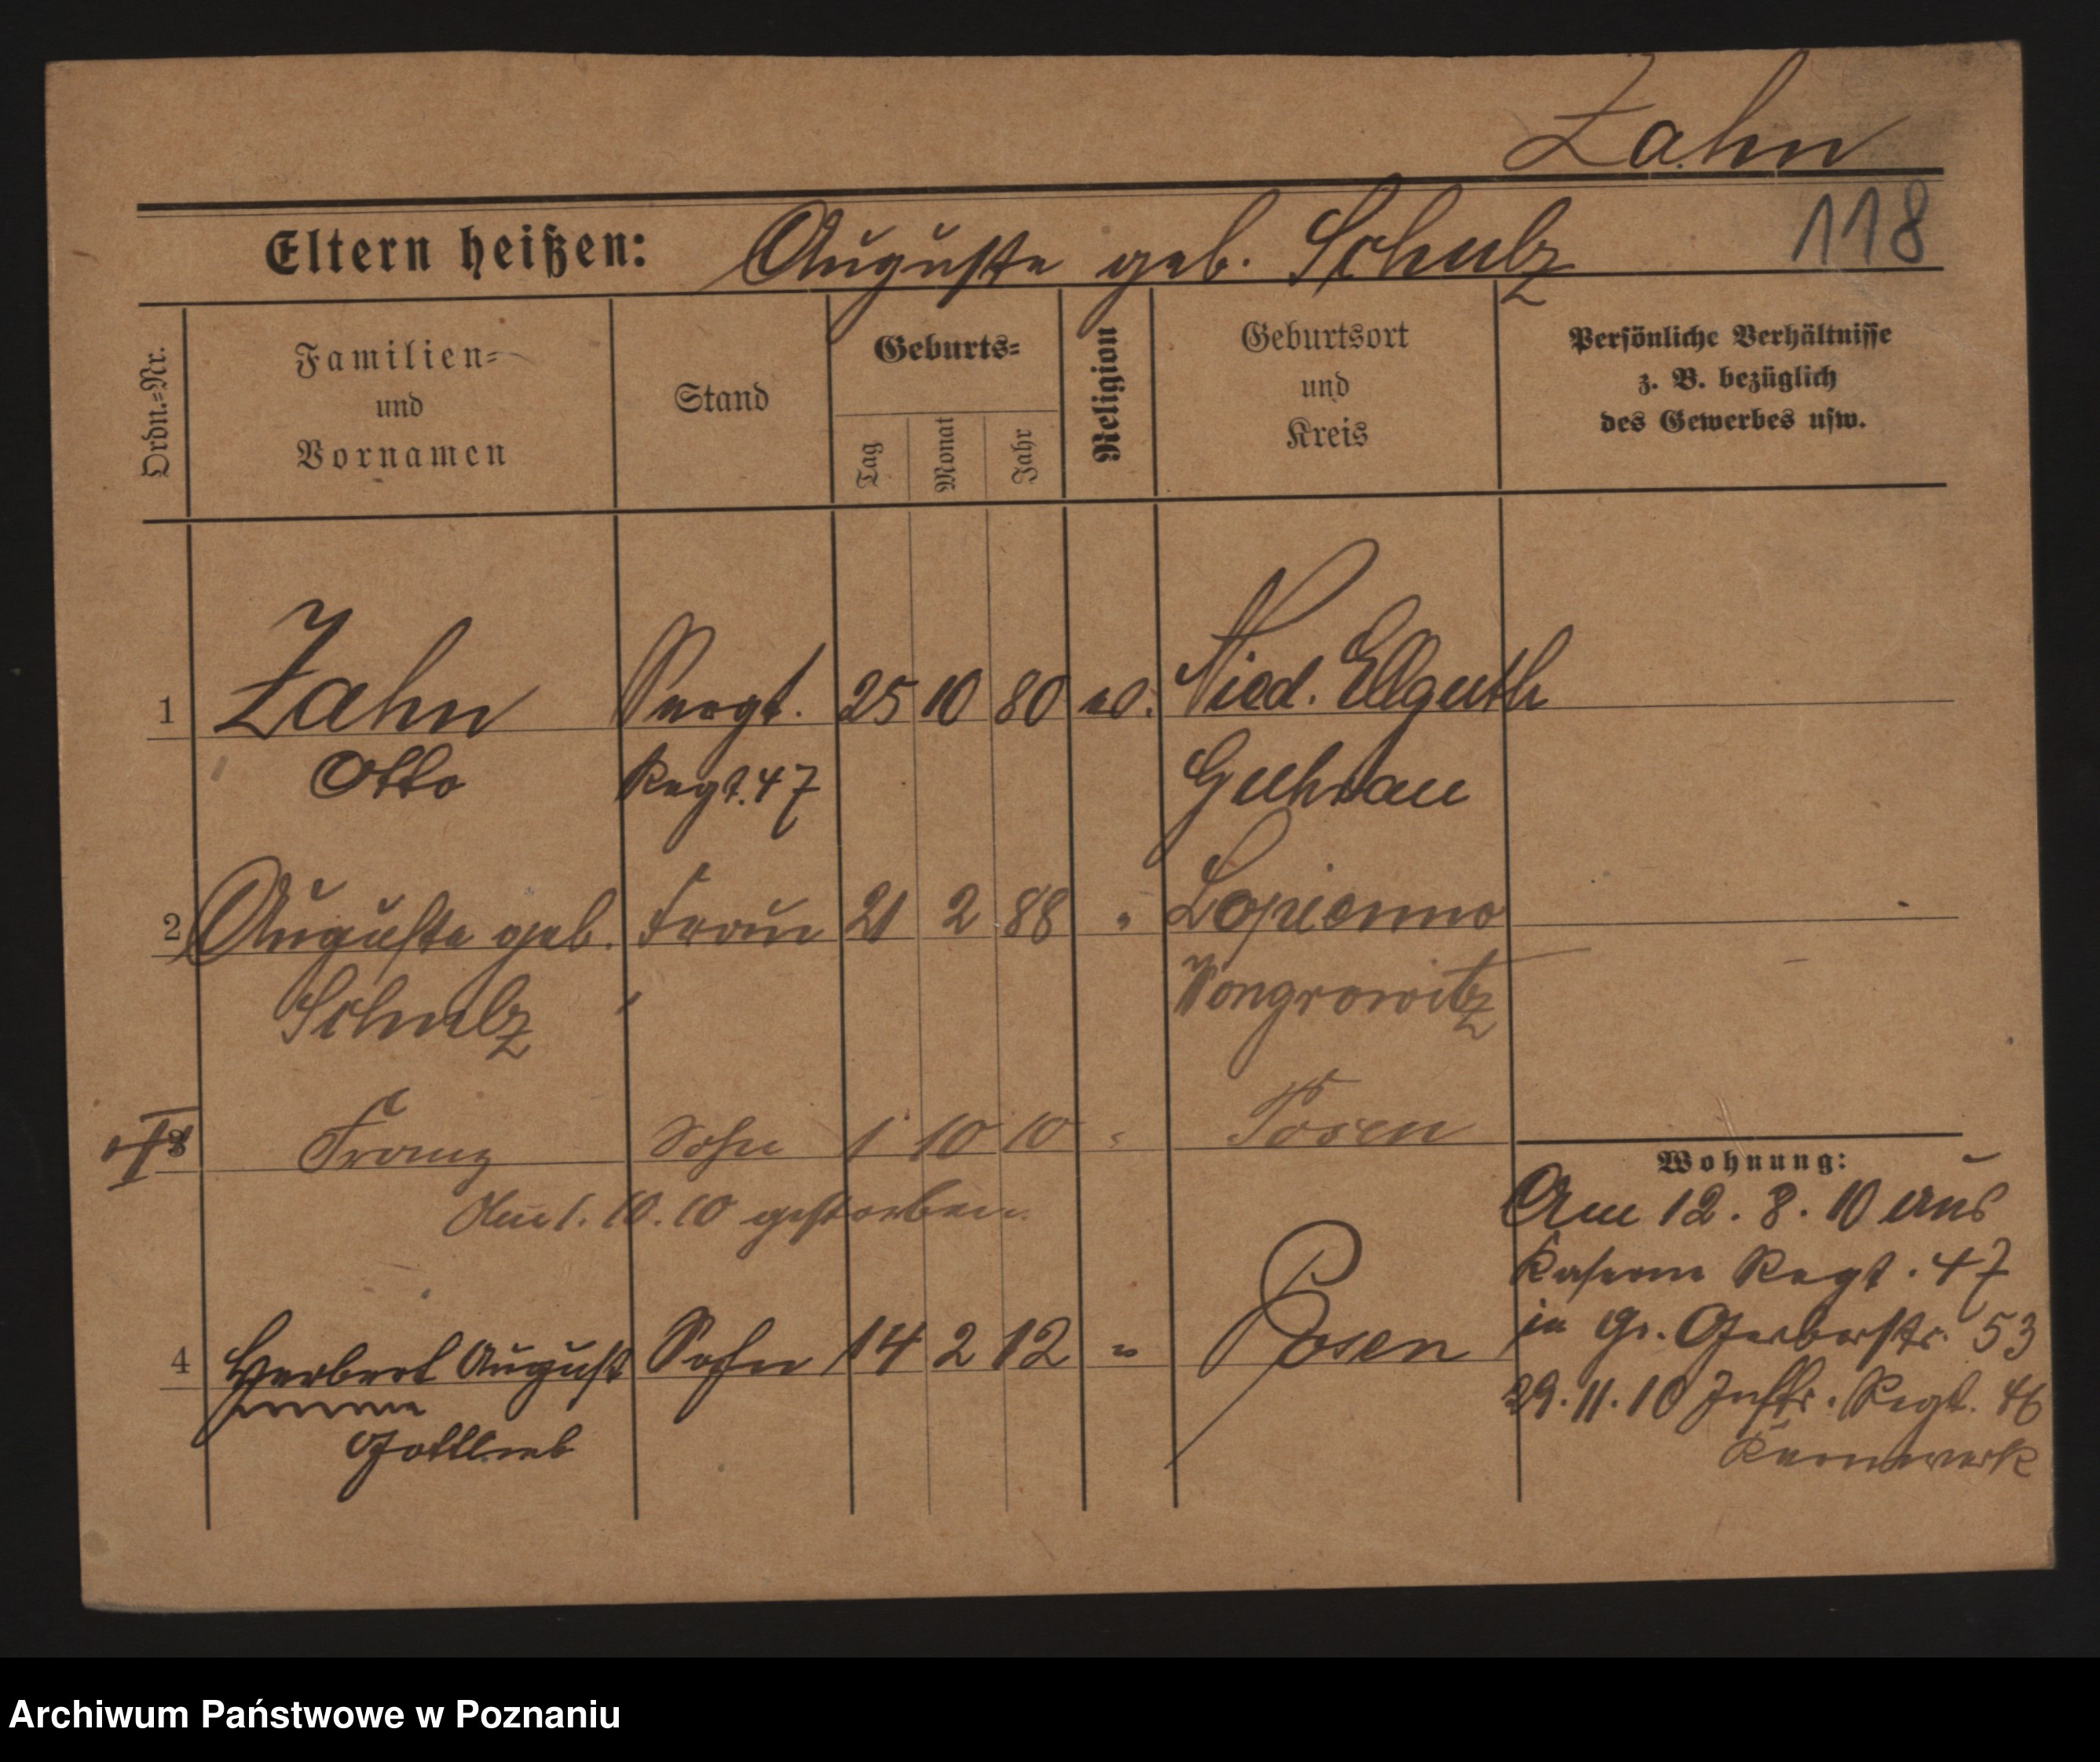 Zahn
118
Eltern heißen: Auguste geb. Schulz
Ordn.-Nr.
Familien- und Vornamen
Stand
Geburts-
Tag
Monat
Jahr
Religion
Geburtsort und Kreis
Persönliche Verhältnisse
z. B. bezüglich
des Gewerbes usw.
1 Zahn Sergt. 25 10 80 ev. Nied. Ellguth
Otto Regt. 47 Guhrau
2 Auguste geb. Frau 21 2 88 " Lopienno
Schulz Wongrowitz
† 3 Franz Sohn 1 10 10 " Posen
Am 1. 10. 10 gestorben.
4 Herbert August Sohn 14 2 12 " Posen
Gottlieb
Wohnung:
Am 12. 8. 10 aus
Kaserne Regt. 47
in Gr. Gerberstr. 53
29. 11. 10 Inftr. Regt. 46
Kernwerk
Archiwum Państwowe w Poznaniu